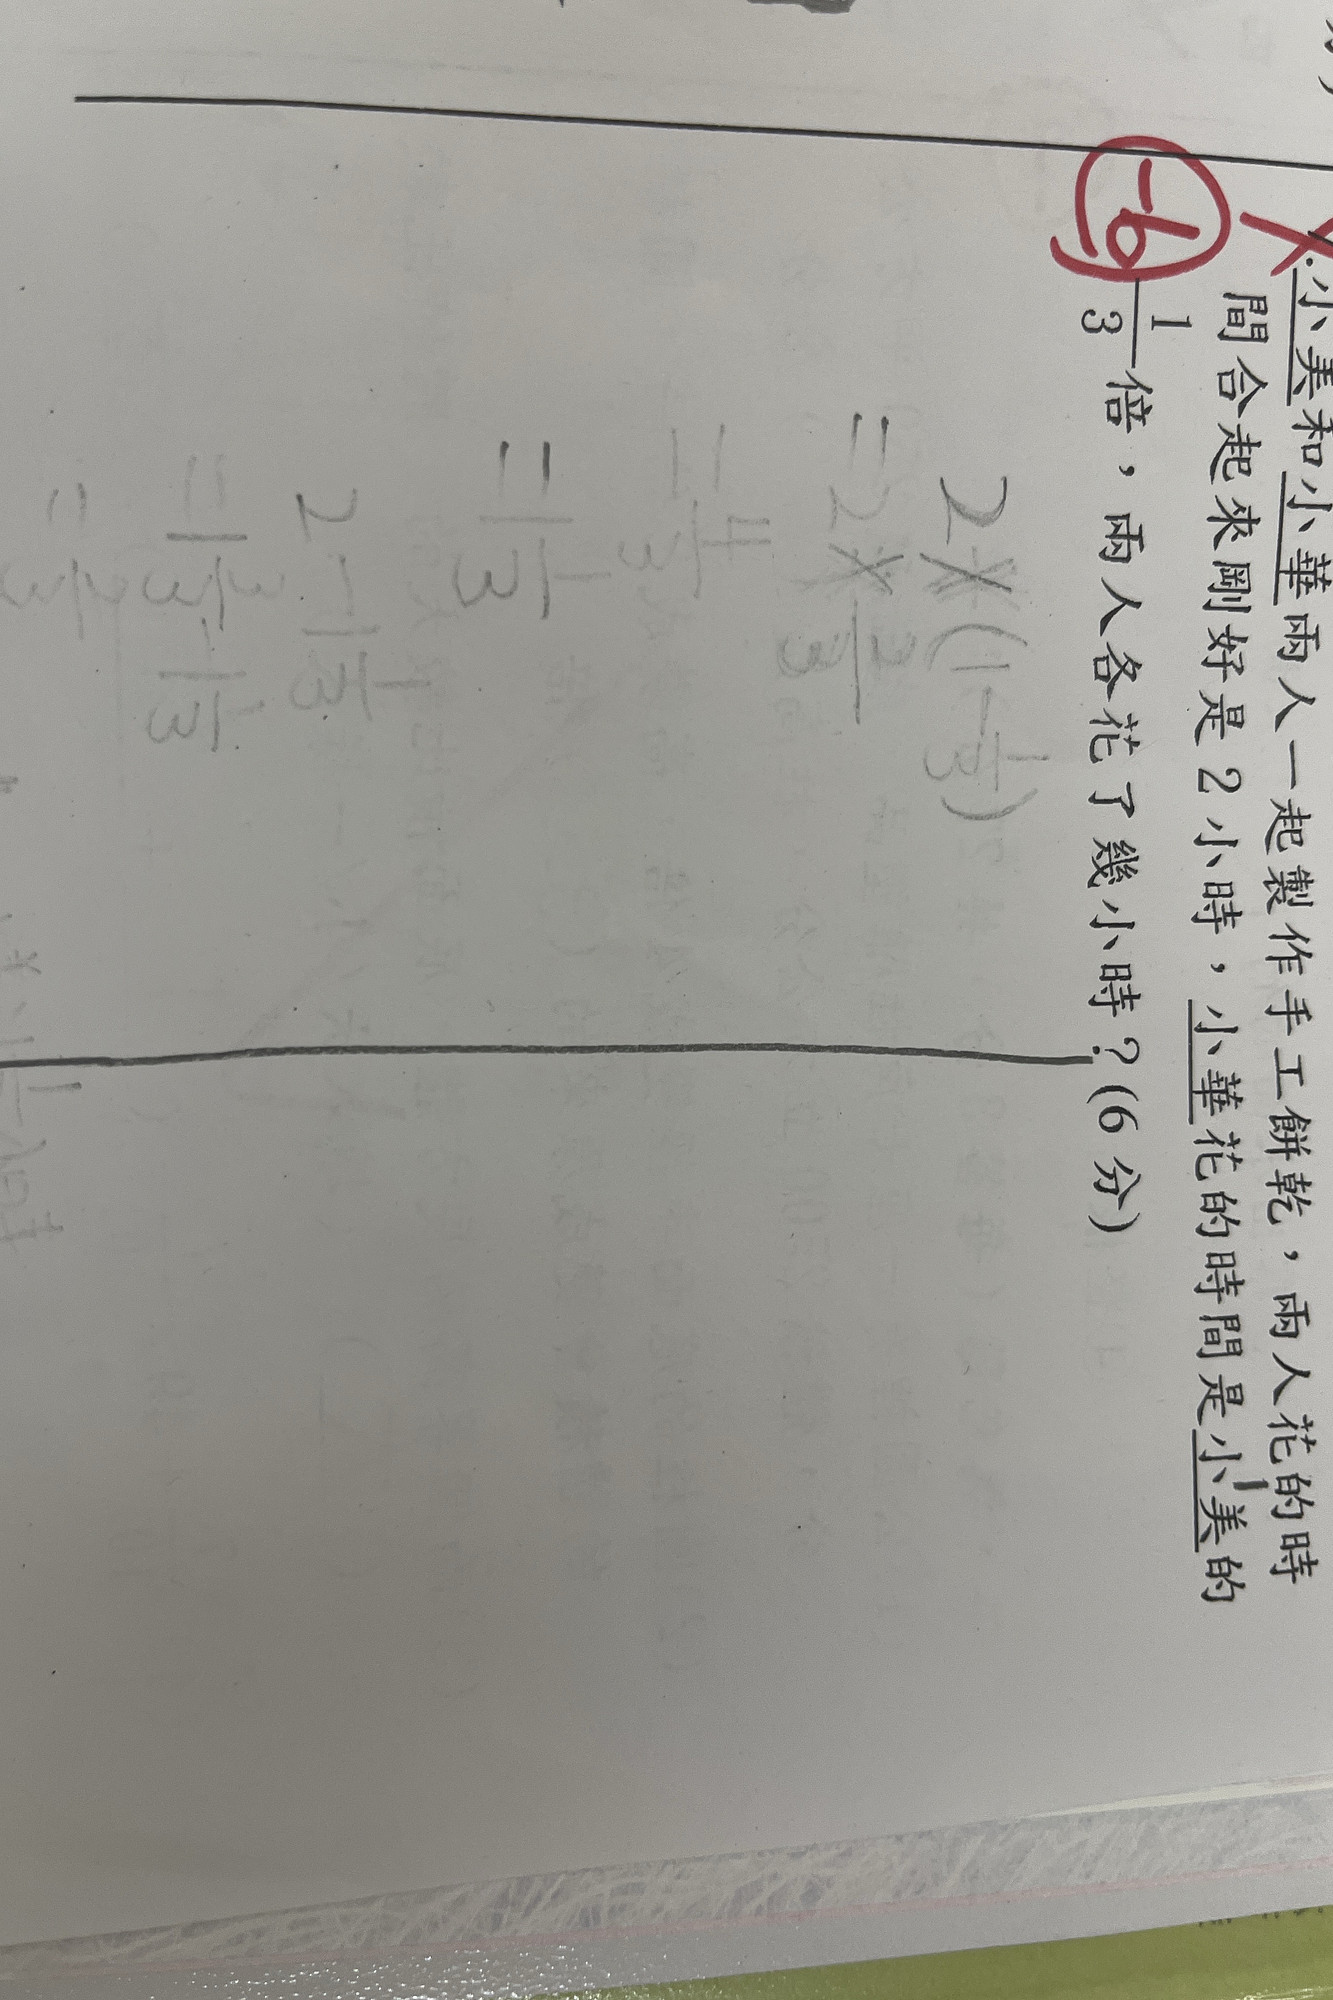 小美和小華兩人一起製作手工餅乾，兩人花的時
間合起來剛好是2小時，小華花的時間是小美的
1/3倍，兩人各花了幾小時？(6分)
-6
2×(1-1/3)
=2×2/3
=4/3
=1 1/3
2-1 1/3
=1 3/3-1 1/3
=2/3